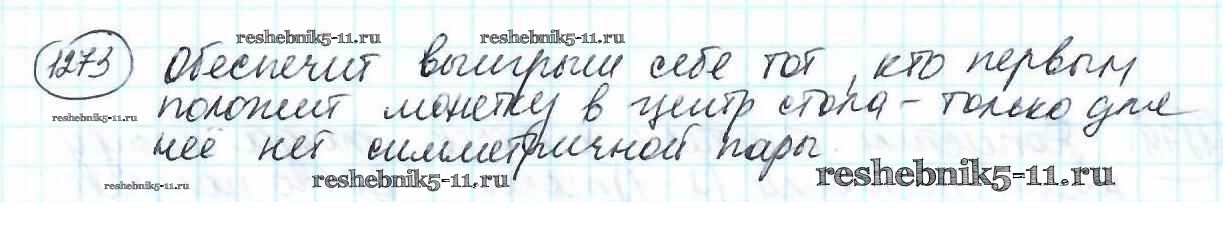 reshebnik5-11.ru reshebnik5-11.ru
1273 Обеспечит выигрыш себе тот, кто первым
положит монетку в центр стола - только для
reshebnik5-11.ru
неё нет симметричной пары.
reshebnik5-11.ru reshebnik5-11.ru reshebnik5-11.ru